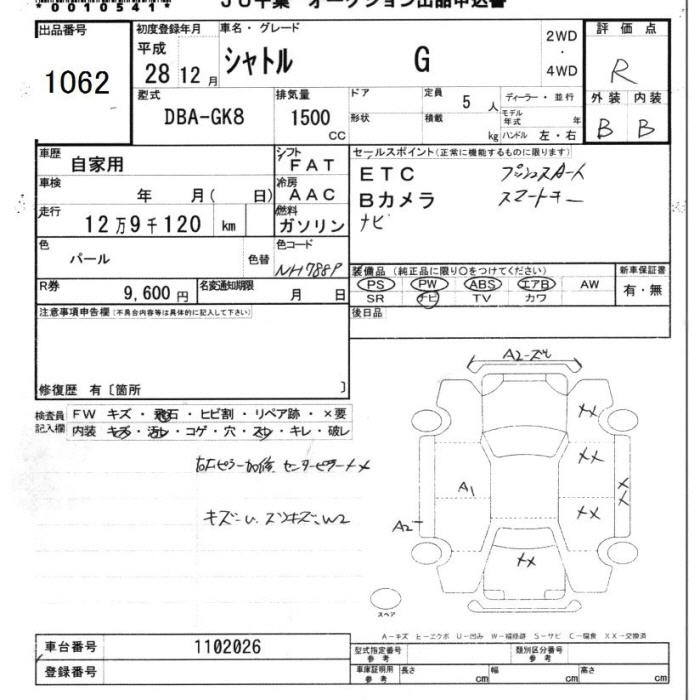 *0010541*
JU千葉 オークション出品申込書
出品番号 初度登録年月 車名・グレード 2WD・4WD 評価点
1062 平成 28 12月 シャトル G R
型式 DBA-GK8 排気量 1500 CC
ドア 定員 5人 ディーラー・並行 外装 内装
形状 積載 kg モデル年式 年 ハンドル 左・右 B B
車歴 自家用 シフト FAT
セールスポイント(正常に機能するものに限ります)
車検 年 月( 日) 冷房 AAC
ETC プッシュスタート
Bカメラ スマートキー
ナビ
走行 12万9千120 km 燃料 ガソリン
色 パール 色替 色コード NH788P
装備品(純正品に限り○をつけてください) 新車保証書
PS PW ABS エアB AW 有・無
SR ナビ TV カワ
R券 9,600円 名変通知期限 月 日
後日品
注意事項申告欄(不具合内容等は具体的に記入して下さい)
修復歴 有〔箇所 〕
検査員記入欄
FW キズ・飛石・ヒビ割・リペア跡・×要
内装 キズ・汚レ・コゲ・穴・スレ・キレ・破レ
センターピラー
キズ
W2
A2-ズレ
XX
XX
XX
XX
XX
A1
A2
スペア
A-キズ E-エクボ U-凹み W-補修跡 S-サビ C-腐食 XX-交換済
車台番号 1102026
登録番号
型式指定番号 参考 類別区分番号 参考
車庫証明用 参考 長さ cm 幅 cm 高さ cm